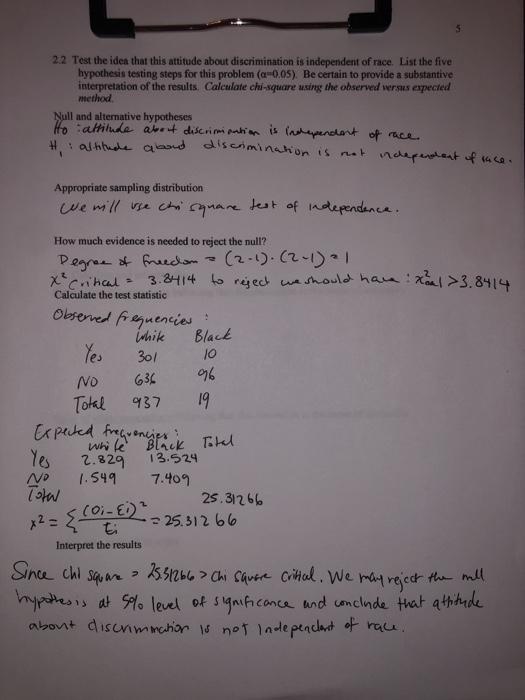 5
2.2 Test the idea that this attitude about discrimination is independent of race. List the five
hypothesis testing steps for this problem (α=0.05). Be certain to provide a substantive
interpretation of the results. Calculate chi-square using the observed versus expected
method.
Null and alternative hypotheses
Ho : attitude about discrimination is independent of race
H₁ : attitude about discrimination is not independent of race.
Appropriate sampling distribution
We will use chi square test of independence.
How much evidence is needed to reject the null?
Degree of freedom = (2-1)·(2-1)=1
X² critical = 3.8414 to reject we should have : x²cal > 3.8414
Calculate the test statistic
Observed frequencies :
White Black
Yes 301 10
NO 636 96
Total 937 19
Expected frequencies :
White Black Total
Yes 2.829 13.524
NO 1.549 7.409
Total 25.31266
x² = Σ (Oi-Ei)² / Ei = 25.31266
Interpret the results
Since chi square = 25.31266 > chi square critical. We may reject the null
hypothesis at 5% level of significance and conclude that attitude
about discrimination is not independent of race.